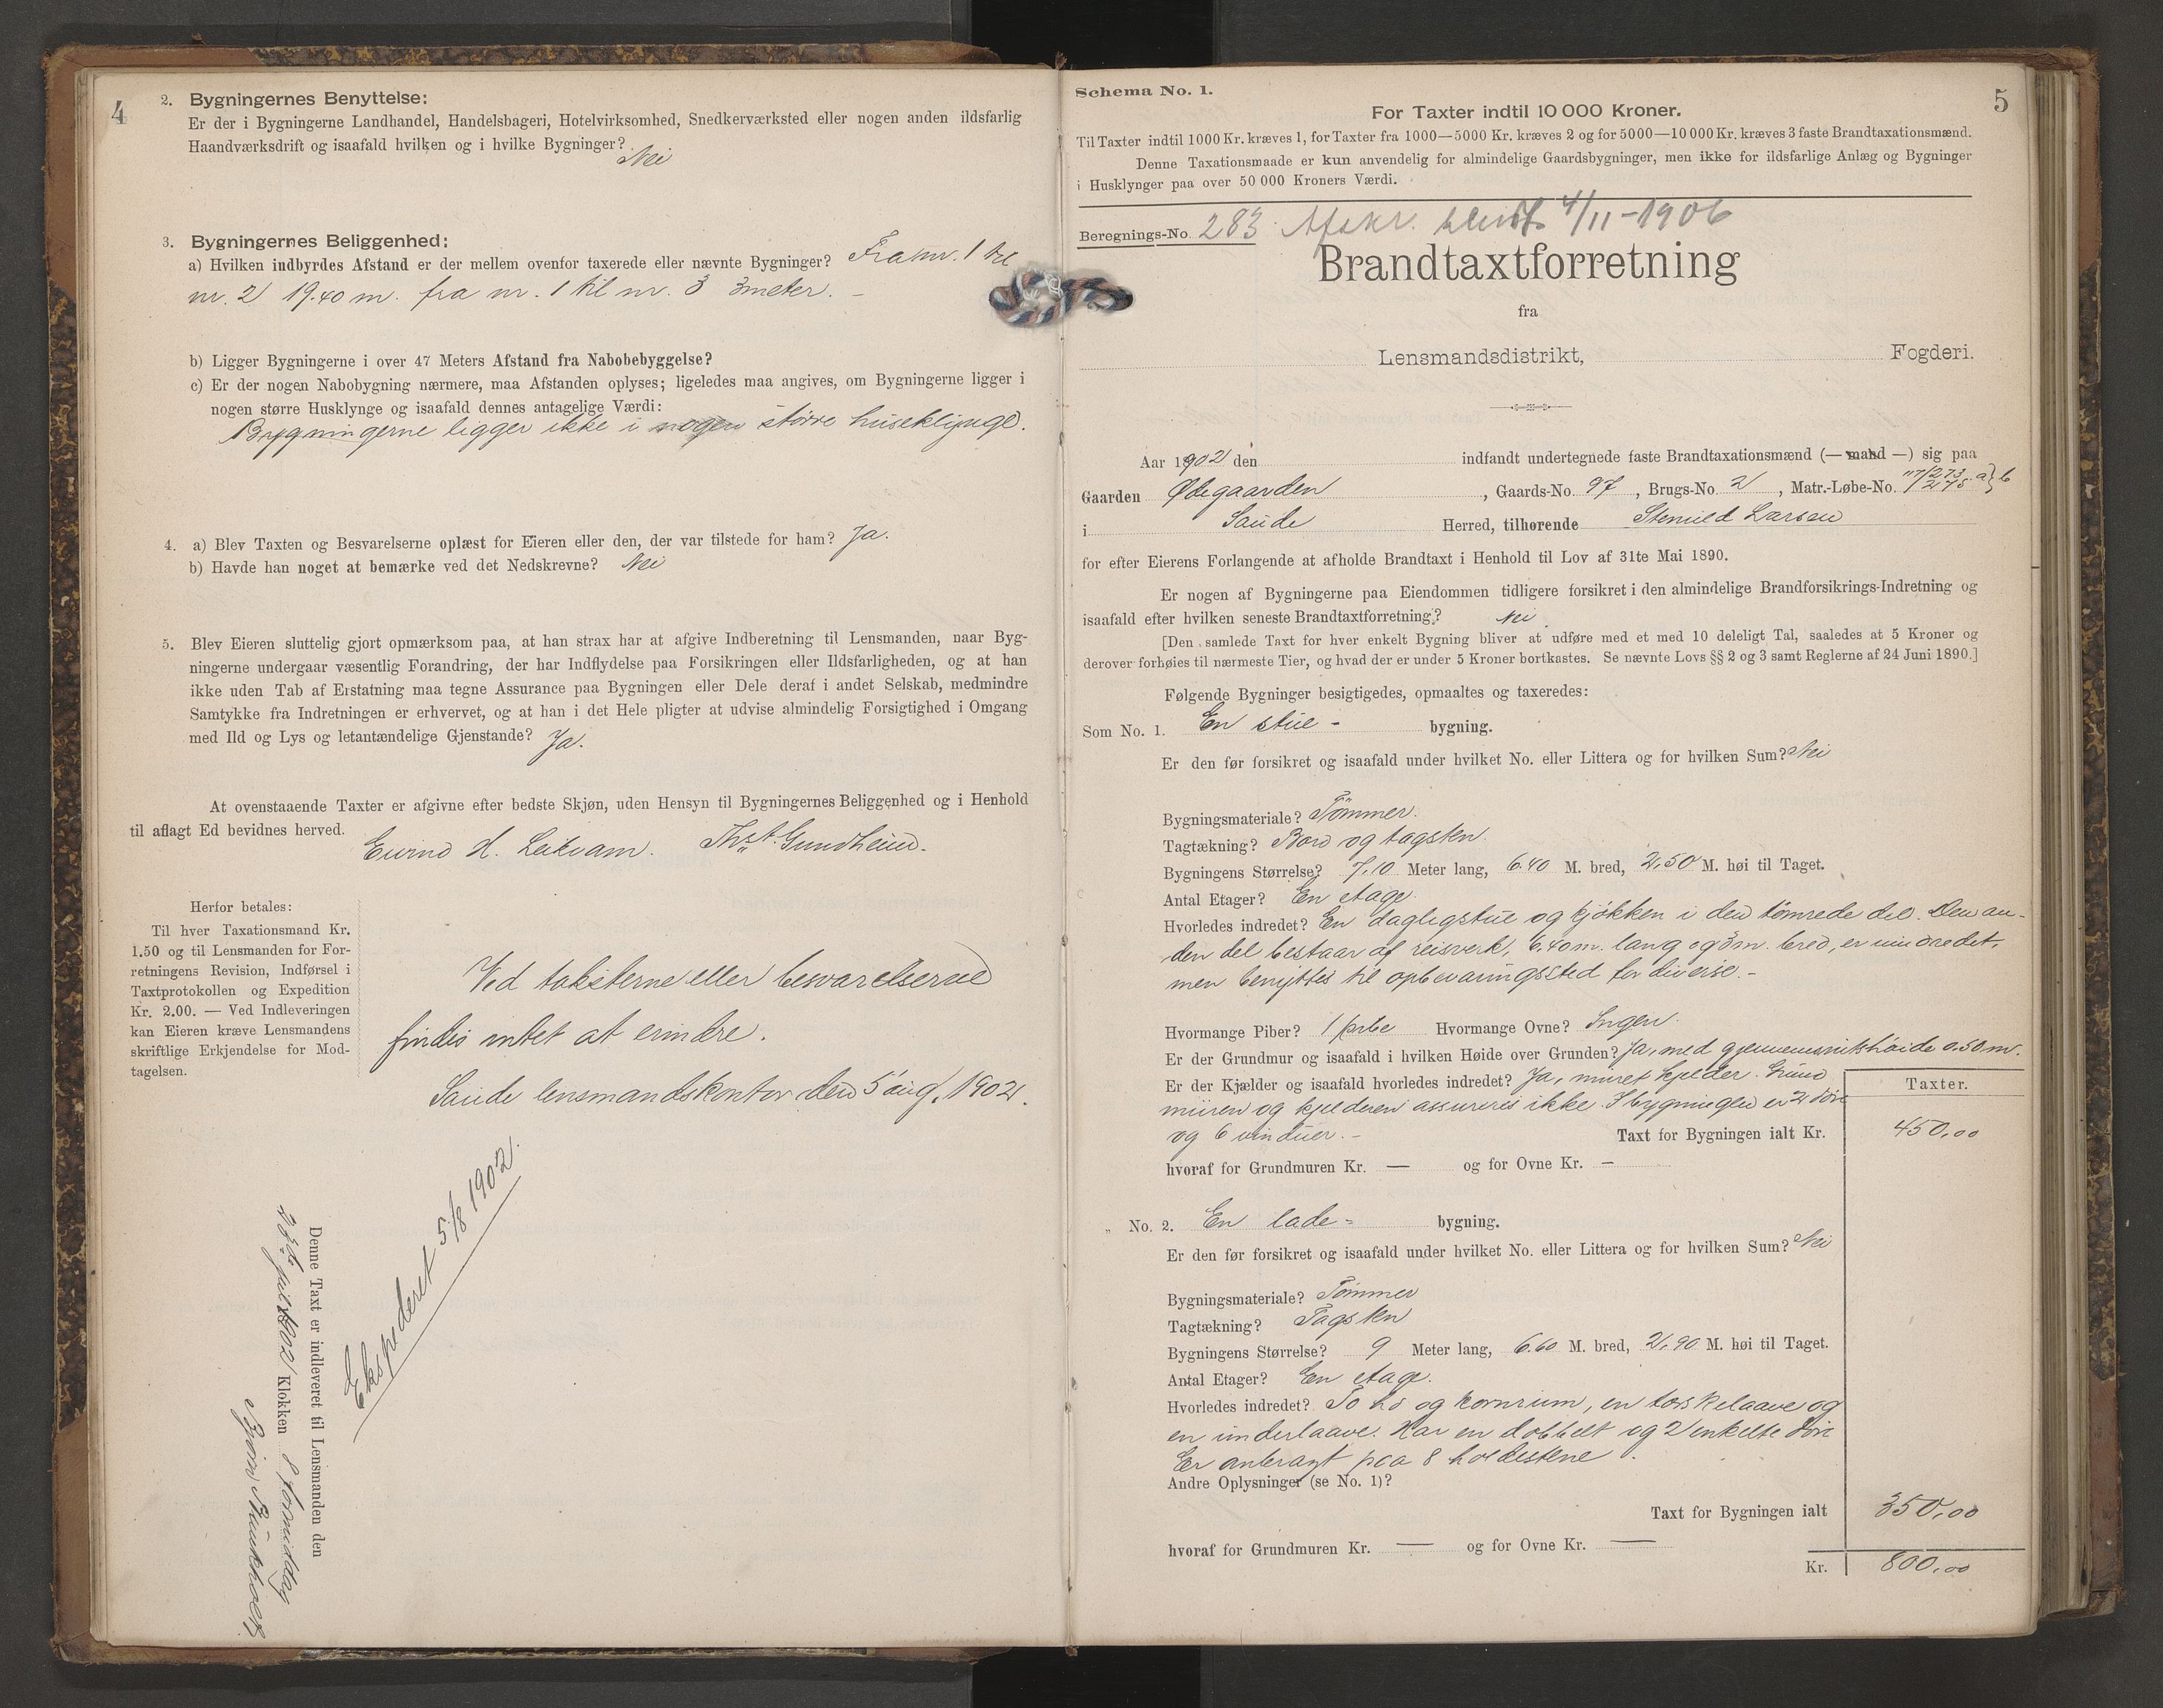 4
2. Bygningernes Benyttelse:
Er der i Bygningerne Landhandel, Handelsbageri, Hotelvirksomhed, Snedkerværksted eller nogen anden ildsfarlig
Haandværksdrift og isaafald hvilken og i hvilke Bygninger?
Nei
3. Bygningernes Beliggenhed:
a) Hvilken indbyrdes Afstand er der mellem ovenfor taxerede eller nævnte Bygninger? Fra nr. 1 til
nr. 2 19.40 m. fra nr. 1 til nr. 3 3 meter. –
b) Ligger Bygningerne i over 47 Meters Afstand fra Nabobebyggelse?
c) Er der nogen Nabobygning nærmere, maa Afstanden oplyses; ligeledes maa angives, om Bygningerne ligger i
nogen større Husklynge og isaafald dennes antagelige Værdi:
Bygningerne ligger ikke i nogen större huseklynge.
4. a) Blev Taxten og Besvarelserne oplæst for Eieren eller den, der var tilstede for ham? Ja.
b) Havde han noget at bemærke ved det Nedskrevne? Nei
5. Blev Eieren sluttelig gjort opmærksom paa, at han strax har at afgive Indberetning til Lensmanden, naar Byg-
ningerne undergaar væsentlig Forandring, der har Indflydelse paa Forsikringen eller Ildsfarligheden, og at han
ikke uden Tab af Erstatning maa tegne Assurance paa Bygningen eller Dele deraf i andet Selskab, medmindre
Samtykke fra Indretningen er erhvervet, og at han i det Hele pligter at udvise almindelig Forsigtighed i Omgang
med Ild og Lys og letantændelige Gjenstande? Ja.
At ovenstaaende Taxter er afgivne efter bedste Skjøn, uden Hensyn til Bygningernes Beliggenhed og i Henhold
til aflagt Ed bevidnes herved.
Eivind H. Leikvam. Ths. A. Gundheim.
Herfor betales:
Til hver Taxationsmand Kr.
1.50 og til Lensmanden for For-
retningens Revision, Indførsel i
Taxtprotokollen og Expedition
Kr. 2.00. — Ved Indleveringen
kan Eieren kræve Lensmandens
skriftlige Erkjendelse for Mod-
tagelsen.
Ved taksterne eller besvarelserne
findes intet at erindre.
Saude lensmandskontor den 5 aug. 1902.
Ekspederet 5/8 1902.
Denne Taxt er indleveret til Lensmanden den
23de juli 1902 Klokken 8 formiddag
Björn
5
Schema No. 1.
For Taxter indtil 10 000 Kroner.
Til Taxter indtil 1000 Kr. kræves 1, for Taxter fra 1000—5000 Kr. kræves 2 og for 5000—10 000 Kr. kræves 3 faste Brandtaxationsmænd.
Denne Taxationsmaade er kun anvendelig for almindelige Gaardsbygninger, men ikke for ildsfarlige Anlæg og Bygninger
i Husklynger paa over 50 000 Kroners Værdi.
Beregnings-No 283 Afskr. 4/11-1906
Brandtaxtforretning
fra
Lensmandsdistrikt, Fogderi.
Aar 1902 den indfandt undertegnede faste Brandtaxationsmænd (— mand —) sig paa
Gaarden Ødegaarden, Gaards-No. 97, Brugs-No. 2, Matr.-Løbe-No.
i Saude Herred, tilhørende Stenuld Larsen
for efter Eierens Forlangende at afholde Brandtaxt i Henhold til Lov af 31te Mai 1890.
Er nogen af Bygningerne paa Eiendommen tidligere forsikret i den almindelige Brandforsikrings-Indretning og
isaafald efter hvilken seneste Brandtaxtforretning? Nei
[Den samlede Taxt for hver enkelt Bygning bliver at udføre med et med 10 deleligt Tal, saaledes at 5 Kroner og
derover forhøies til nærmeste Tier, og hvad der er under 5 Kroner bortkastes. Se nævnte Lovs §§ 2 og 3 samt Reglerne af 24 Juni 1890.]
Følgende Bygninger besigtigedes, opmaaltes og taxeredes:
Som No. 1. En stue - bygning.
Er den før forsikret og isaafald under hvilket No. eller Littera og for hvilken Sum? Nei
Bygningsmateriale? Tömmer.
Tagtækning? Bord og tagsten.
Bygningens Størrelse? 7,10 Meter lang, 6.40 M. bred, 2,50 M. høi til Taget.
Antal Etager? En etage.
Hvorledes indredet? En dagligstue og kjökken i den tömrede del. Den an-
den del bestaar af reisverk, 6.40 m. lang og 3 m. bred, er uindredet,
men benyttes til opbevaringssted for diverse. –
Hvormange Piber? 1 pibe Hvormange Ovne? Ingen.
Er der Grundmur og isaafald i hvilken Høide over Grunden? Ja, med gjennemsnitshöide 0.50 m.
Er der Kjælder og isaafald hvorledes indredet? Ja, muret kjelder. Grund
muren og kjelderen assureres ikke. I bygningen er 2 döre
og 6 vinduer. –
Taxter.
Taxt for Bygningen ialt Kr. 450,00
hvoraf for Grundmuren Kr. — og for Ovne Kr. –
„ No. 2. En lade - bygning.
Er den før forsikret og isaafald under hvilket No. eller Littera og for hvilken Sum? Nei
Bygningsmateriale? Tömmer
Tagtækning? Tagsten
Bygningens Størrelse? 9 Meter lang, 6.60 M. bred, 2,90 M. høi til Taget.
Antal Etager? En etage.
Hvorledes indredet? To hö og kornrum, en torskelaave og
en underlaave. Har en dobbelt og 2 enkelte döre
Er anbragt paa 8 holdestene.
Andre Oplysninger (se No. 1)?
Taxt for Bygningen ialt 350,00
hvoraf for Grundmuren Kr. — og for Ovne Kr. —
Kr. 800,00